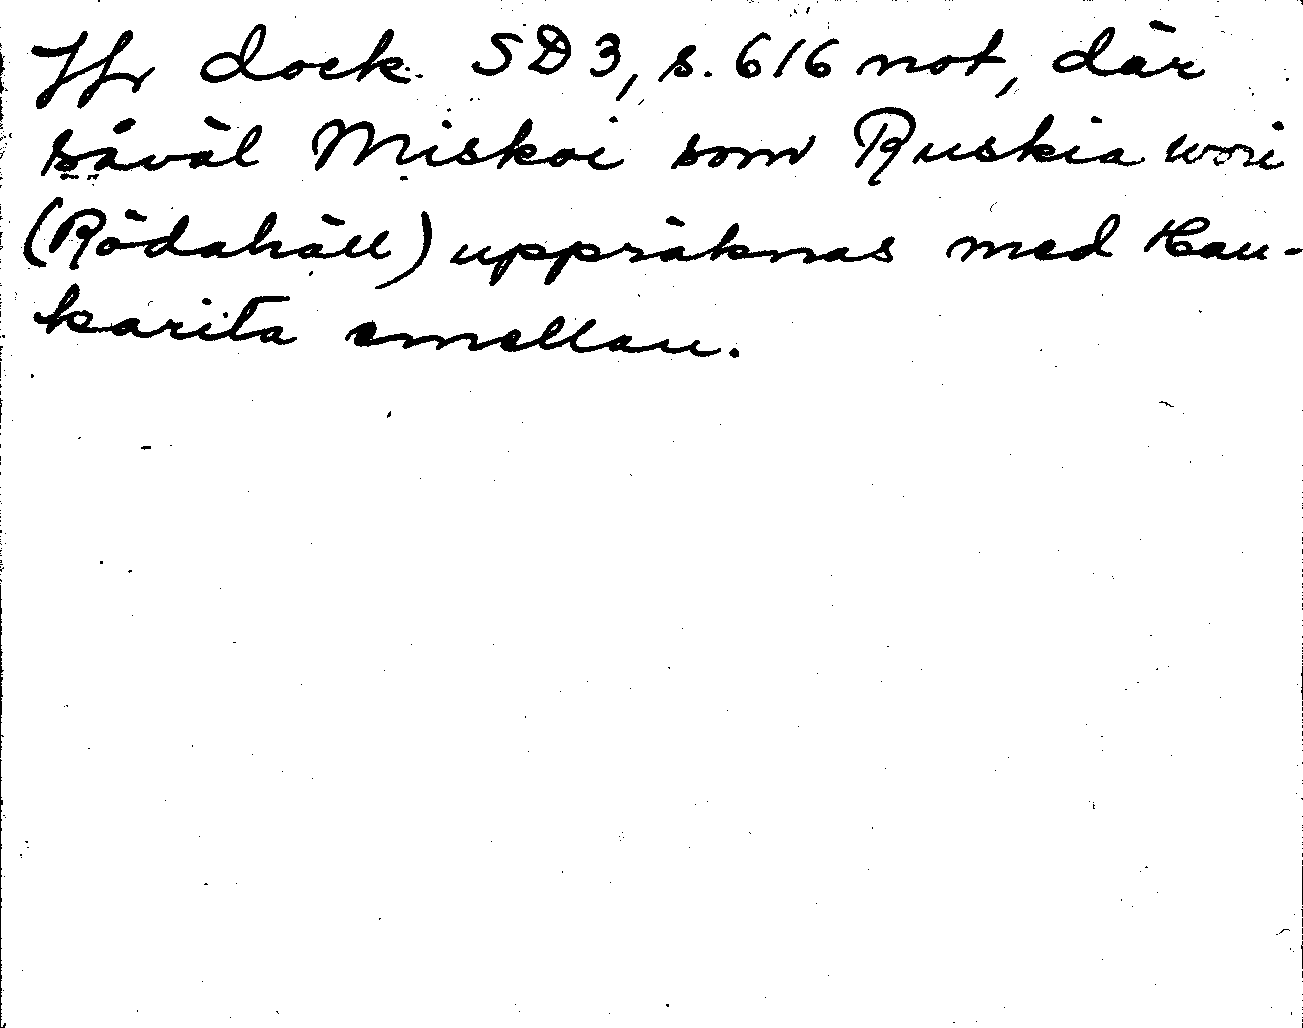 Jfr dock. SD 3, s. 616 not, där
såväl Miskoi som Ruskia wori
(Rödahäll) uppräknas med Hau-
karita emellan.